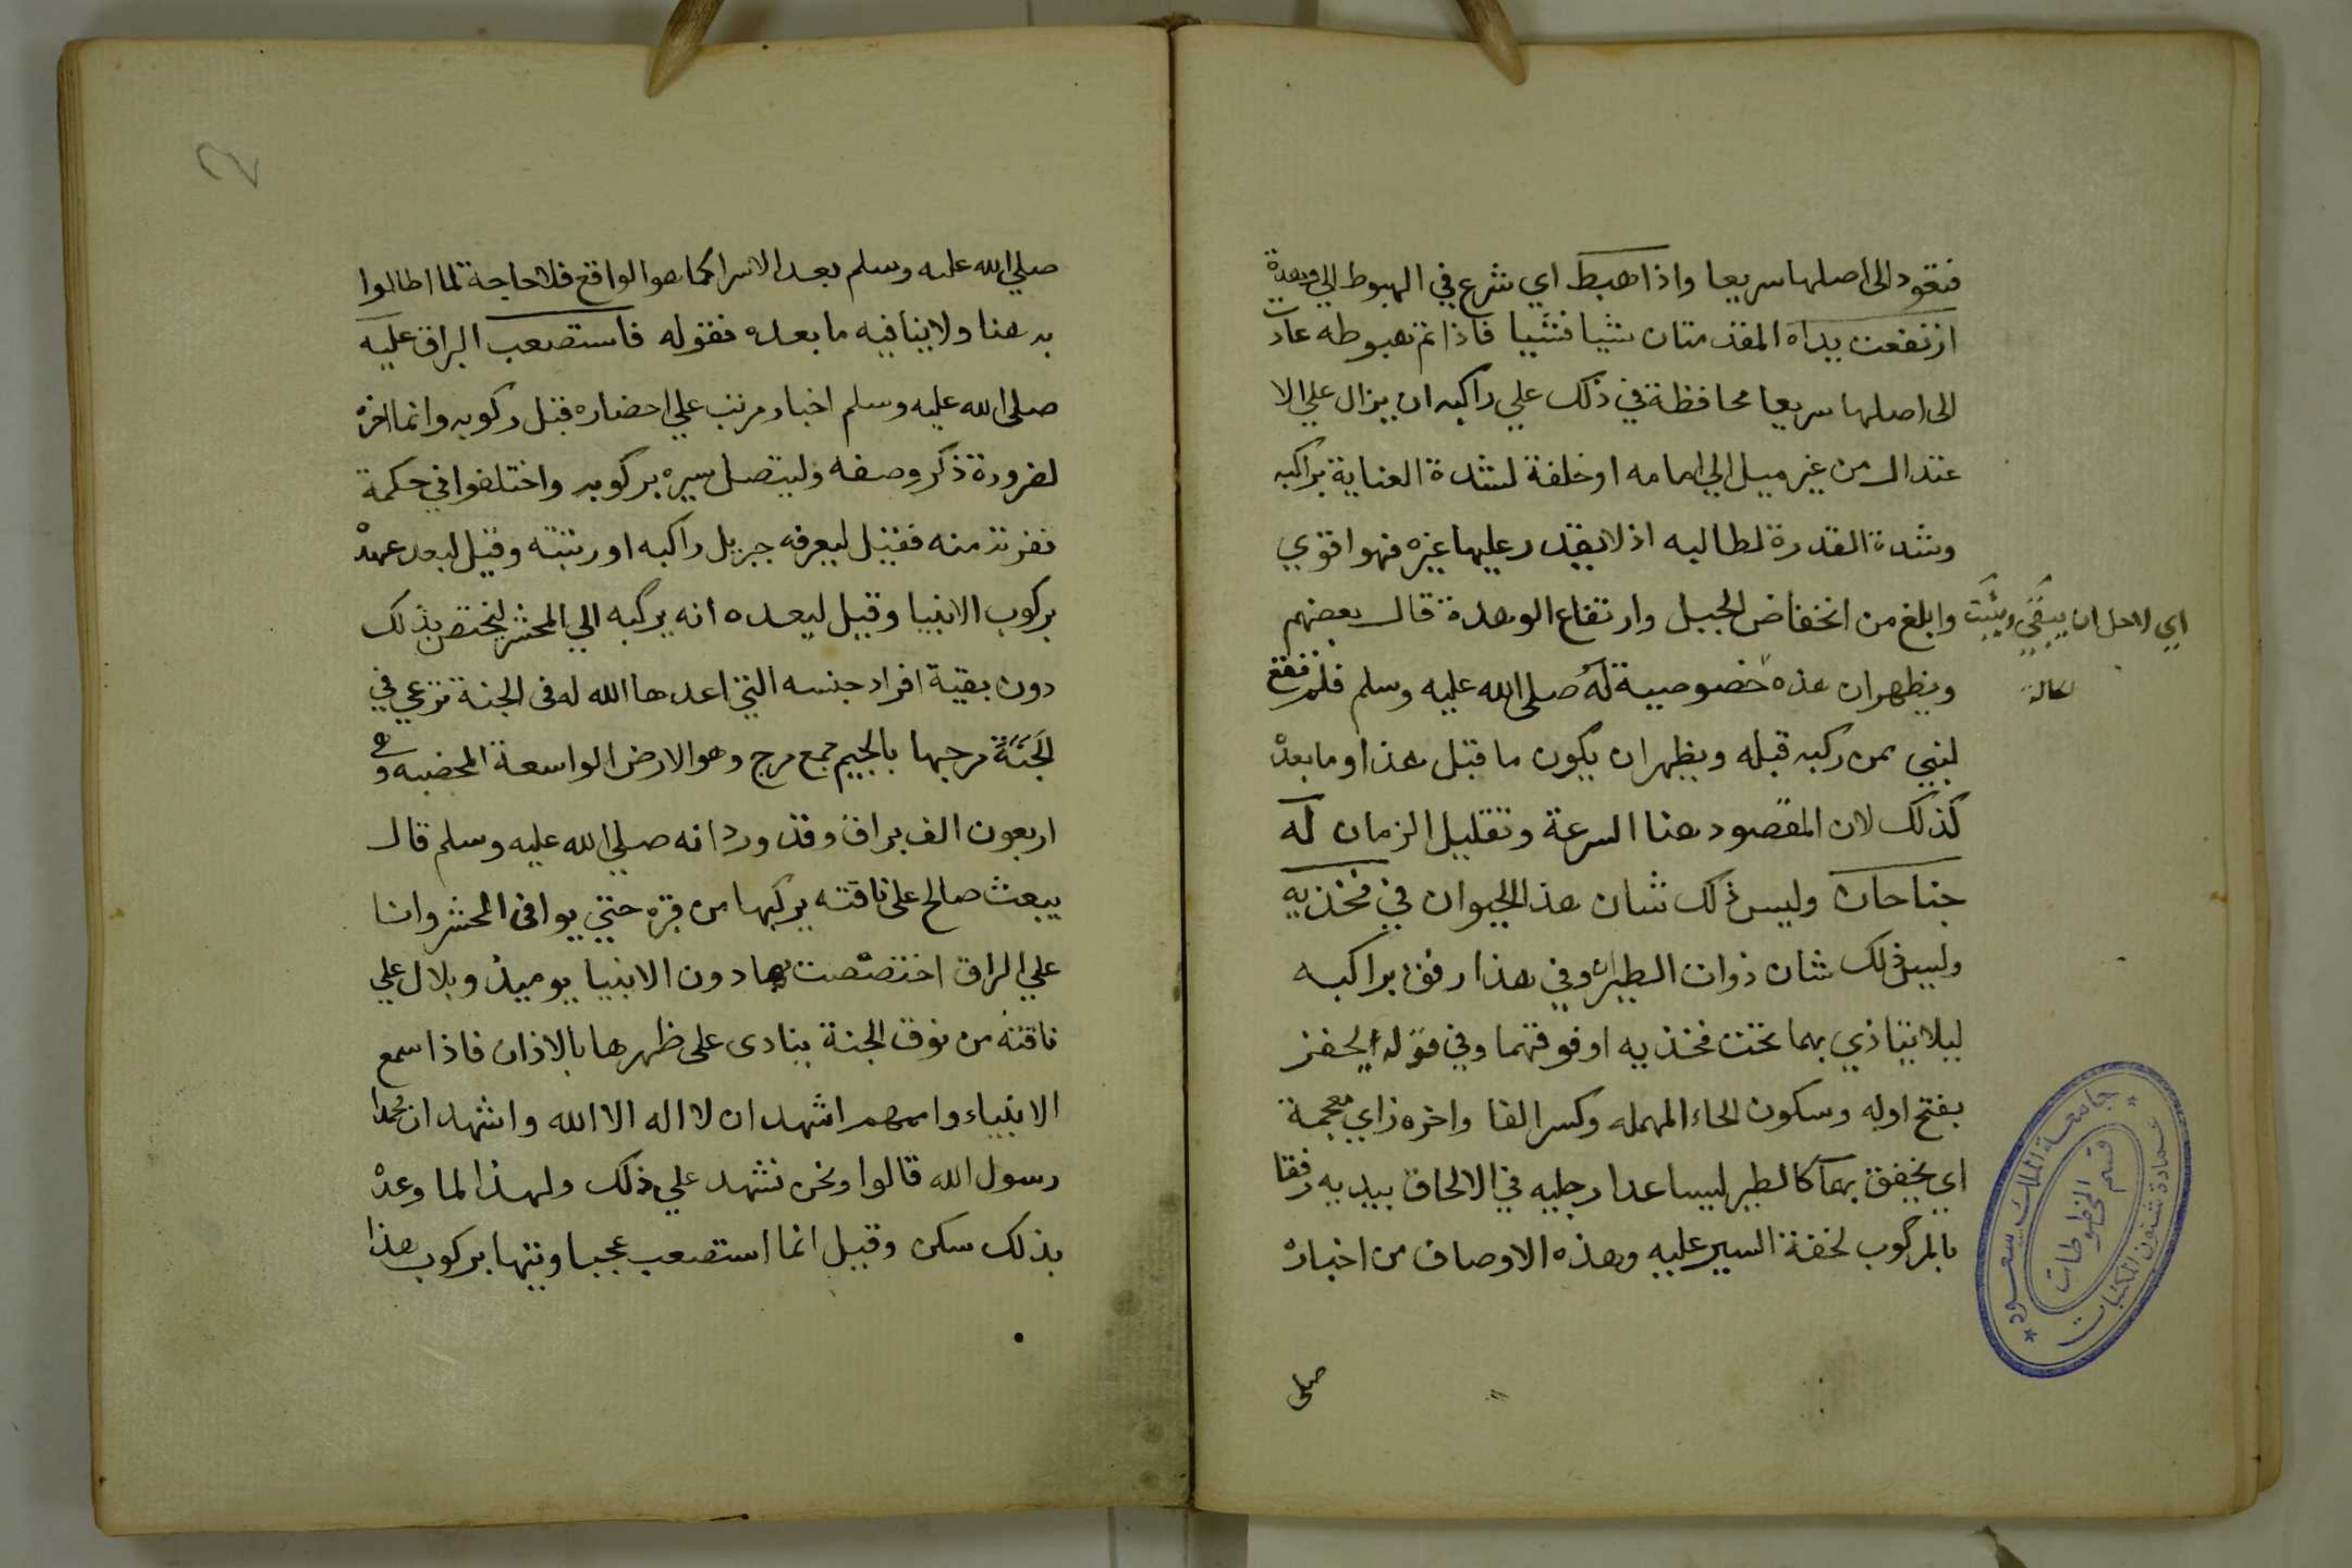 فتعود الى اصلها سريعا واذا هبط اي شرع في الهبوط الي وهدة
ارتفعت يداه المقدمتان شيا فشيا فاذا تم هبوطه عادت
الى اصلها سريعا محافظة في ذلك علي راكبه ان يزال علي الا
عتدال من غير ميل الي امامه او خلفة لشدة العناية براكبه
وشدة القدرة لطالبه اذ لا يقدر عليها غيره فهو اقوي
وابلغ من انخفاض الجبل وارتفاع الوهدة قال بعضهم
اي لاجل ان يبقي ويثبت
ويظهر ان هذه خصوصية له صلى الله عليه وسلم فلم تقع
لنبي ممن ركبه قبله ويظهر ان يكون ما قبل هذا وما بعده
كذلك لان المقصود هنا السرعة وتقليل الزمان له
جناحان وليس ذلك شان هذا الحيوان في فخذيه
وليس ذلك شان ذوات الطيران وفي هذا رفق براكبه
ليلا يتاذي بهما تحت فخذيه او فوقهما وفي قوله يحفز
بفتح اوله وسكون الحاء المهمله وكسر الفا واخره زاي معجمة
اي يخفق بهما كالطير ليساعدا رجليه في الالحاق بيديه رفقا
بالمركوب لخفة السير عليه وهذه الاوصاف من اخباره
صلى
جامعة الملك سعود
قسم المخطوطات
عمادة شئون المكتبات
صلي الله عليه وسلم بعد الاسرا كما هو الواقع فلا حاجة لما اطالوا
به هنا ولا ينافيه ما بعده فقوله فاستصعب البراق عليه
صلى الله عليه وسلم اخبار مرتب علي احضاره قبل ركوبه وانما اخره
لضرورة ذكر وصفه وليتصل سيره بركوبه واختلفوا في حكمة
نفرته منه فقيل ليعرفه جبريل راكبه او رتبته وقيل لبعد عهده
بركوب الانبيا وقيل ليعده انه يركبه الي المحشر ليختص بذلك
دون بقية افراد جنسه التي اعدها الله له فى الجنة ترعي في
الجنة مرجها بالجيم جمع مرج وهو الارض الواسعة المخضبه وهي
اربعون الف براق وقد ورد انه صلي الله عليه وسلم قال
يبعث صالح على ناقته يركبها من قبره حتي يوافى المحشر وانا
علي البراق اختصصت بها دون الانبيا يوميذ وبلال علي
ناقته من نوق الجنة ينادى على ظهرها بالاذان فاذا سمع
الانبياء واممهم اشهد ان لا اله الا الله واشهد ان محمدا
رسول الله قالوا ونحن نشهد علي ذلك ولهذا لما وعده
بذلك سكن وقيل انما استصعب عجبا وتيها بركوب هذا